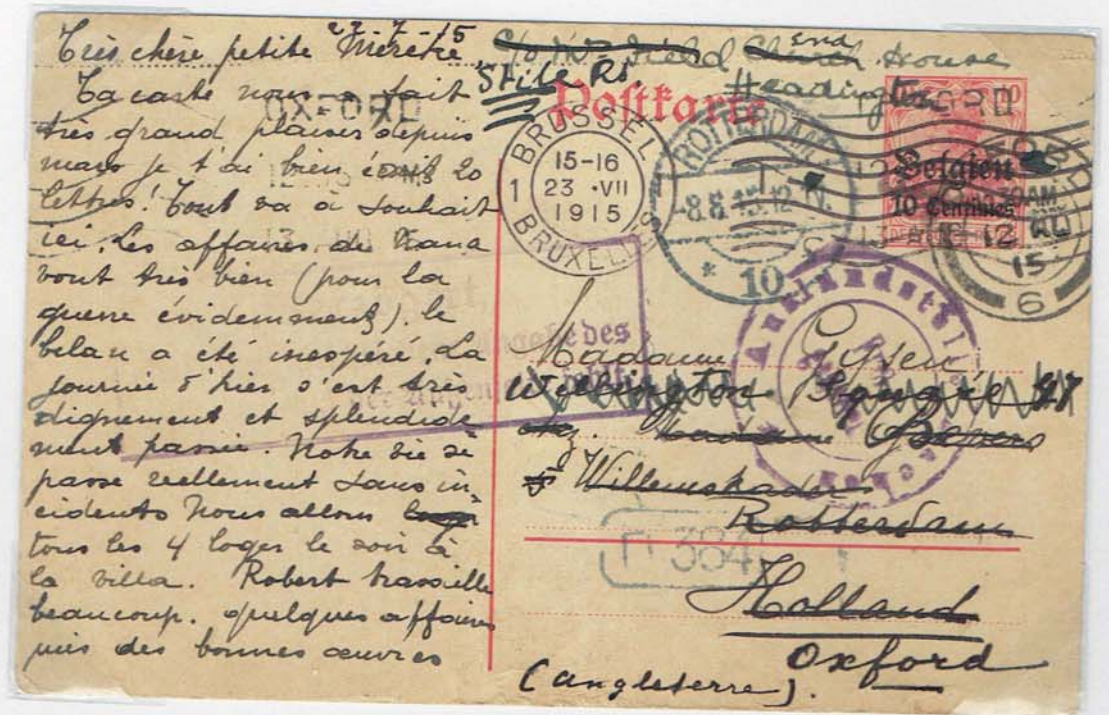 22-7-15
Très chère petite Mérette
Ta carte nous a fait
très grand plaisir depuis
mars je t'ai bien écrit 20
lettres! Tout va a souhait
ici. Les affaires de
vont très bien (pour la
guerre évidemment). le
bilan a été inespéré. La
journée d'hier s'est très
dignement et splendide
ment passée. Notre vie se
passe reellement sans in-
cidents Nous allons
tous les 4 loger le soir à
la villa. Robert travaille
beaucoup. quelques affaires
puis des bonnes œuvres
c/o Mrs Field Church End House
Stile Rd. Headington
Postkarte
OXFORD
Belgien
10 Centimes
BRUSSEL
15-16
1 23 ·VII
1915
BRUXELLES
ROTTERDAM
-8.8.15.12-1.N.
* 10
OXFORD
30AM
12
15
6
Auslandstelle
Aachen
des
Madame Gysen
Wellington Square 47
Madame
Willemskade
Rotterdam
384
Holland
Oxford
(Angleterre).